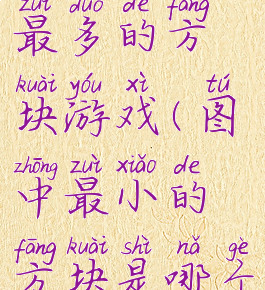 zuì duō de fāng
最多的方
kuài yóu xì tú
块游戏(图
zhōng zuì xiǎo de
中最小的
fāng kuài shì nǎ gè
方块是哪个